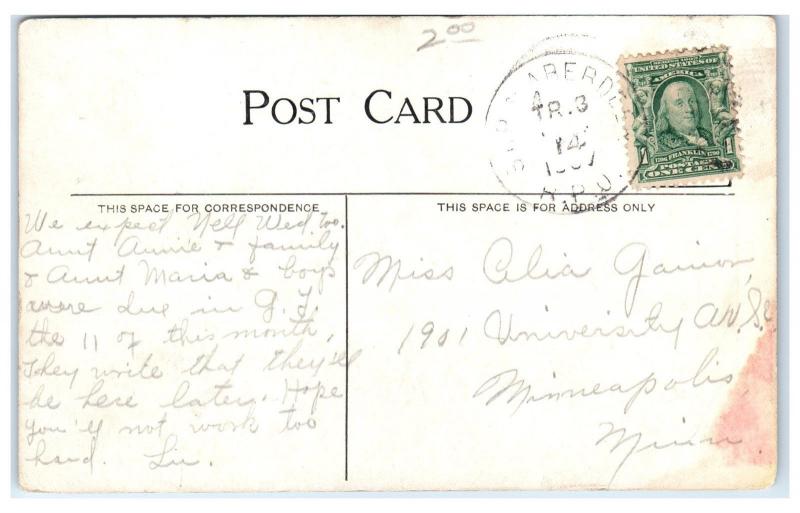 2.00
POST CARD
ABERDEEN
TR. 3
14
1907
R.P.O.
SERIES 1902
UNITED STATES OF
AMERICA
1706 FRANKLIN 1790
POSTAGE
1 ONE CENT 1
THIS SPACE FOR CORRESPONDENCE
THIS SPACE IS FOR ADDRESS ONLY
We expect Nell Wed. too.
Aunt Annie & family
& Aunt Maria & boys
due in G. F.
the 11 of this month,
They write that they'll
be here later. Hope
you'll not work too
hard. Liu.
Miss Celia Gainor,
1901 University Av S.E.
Minneapolis,
Minn